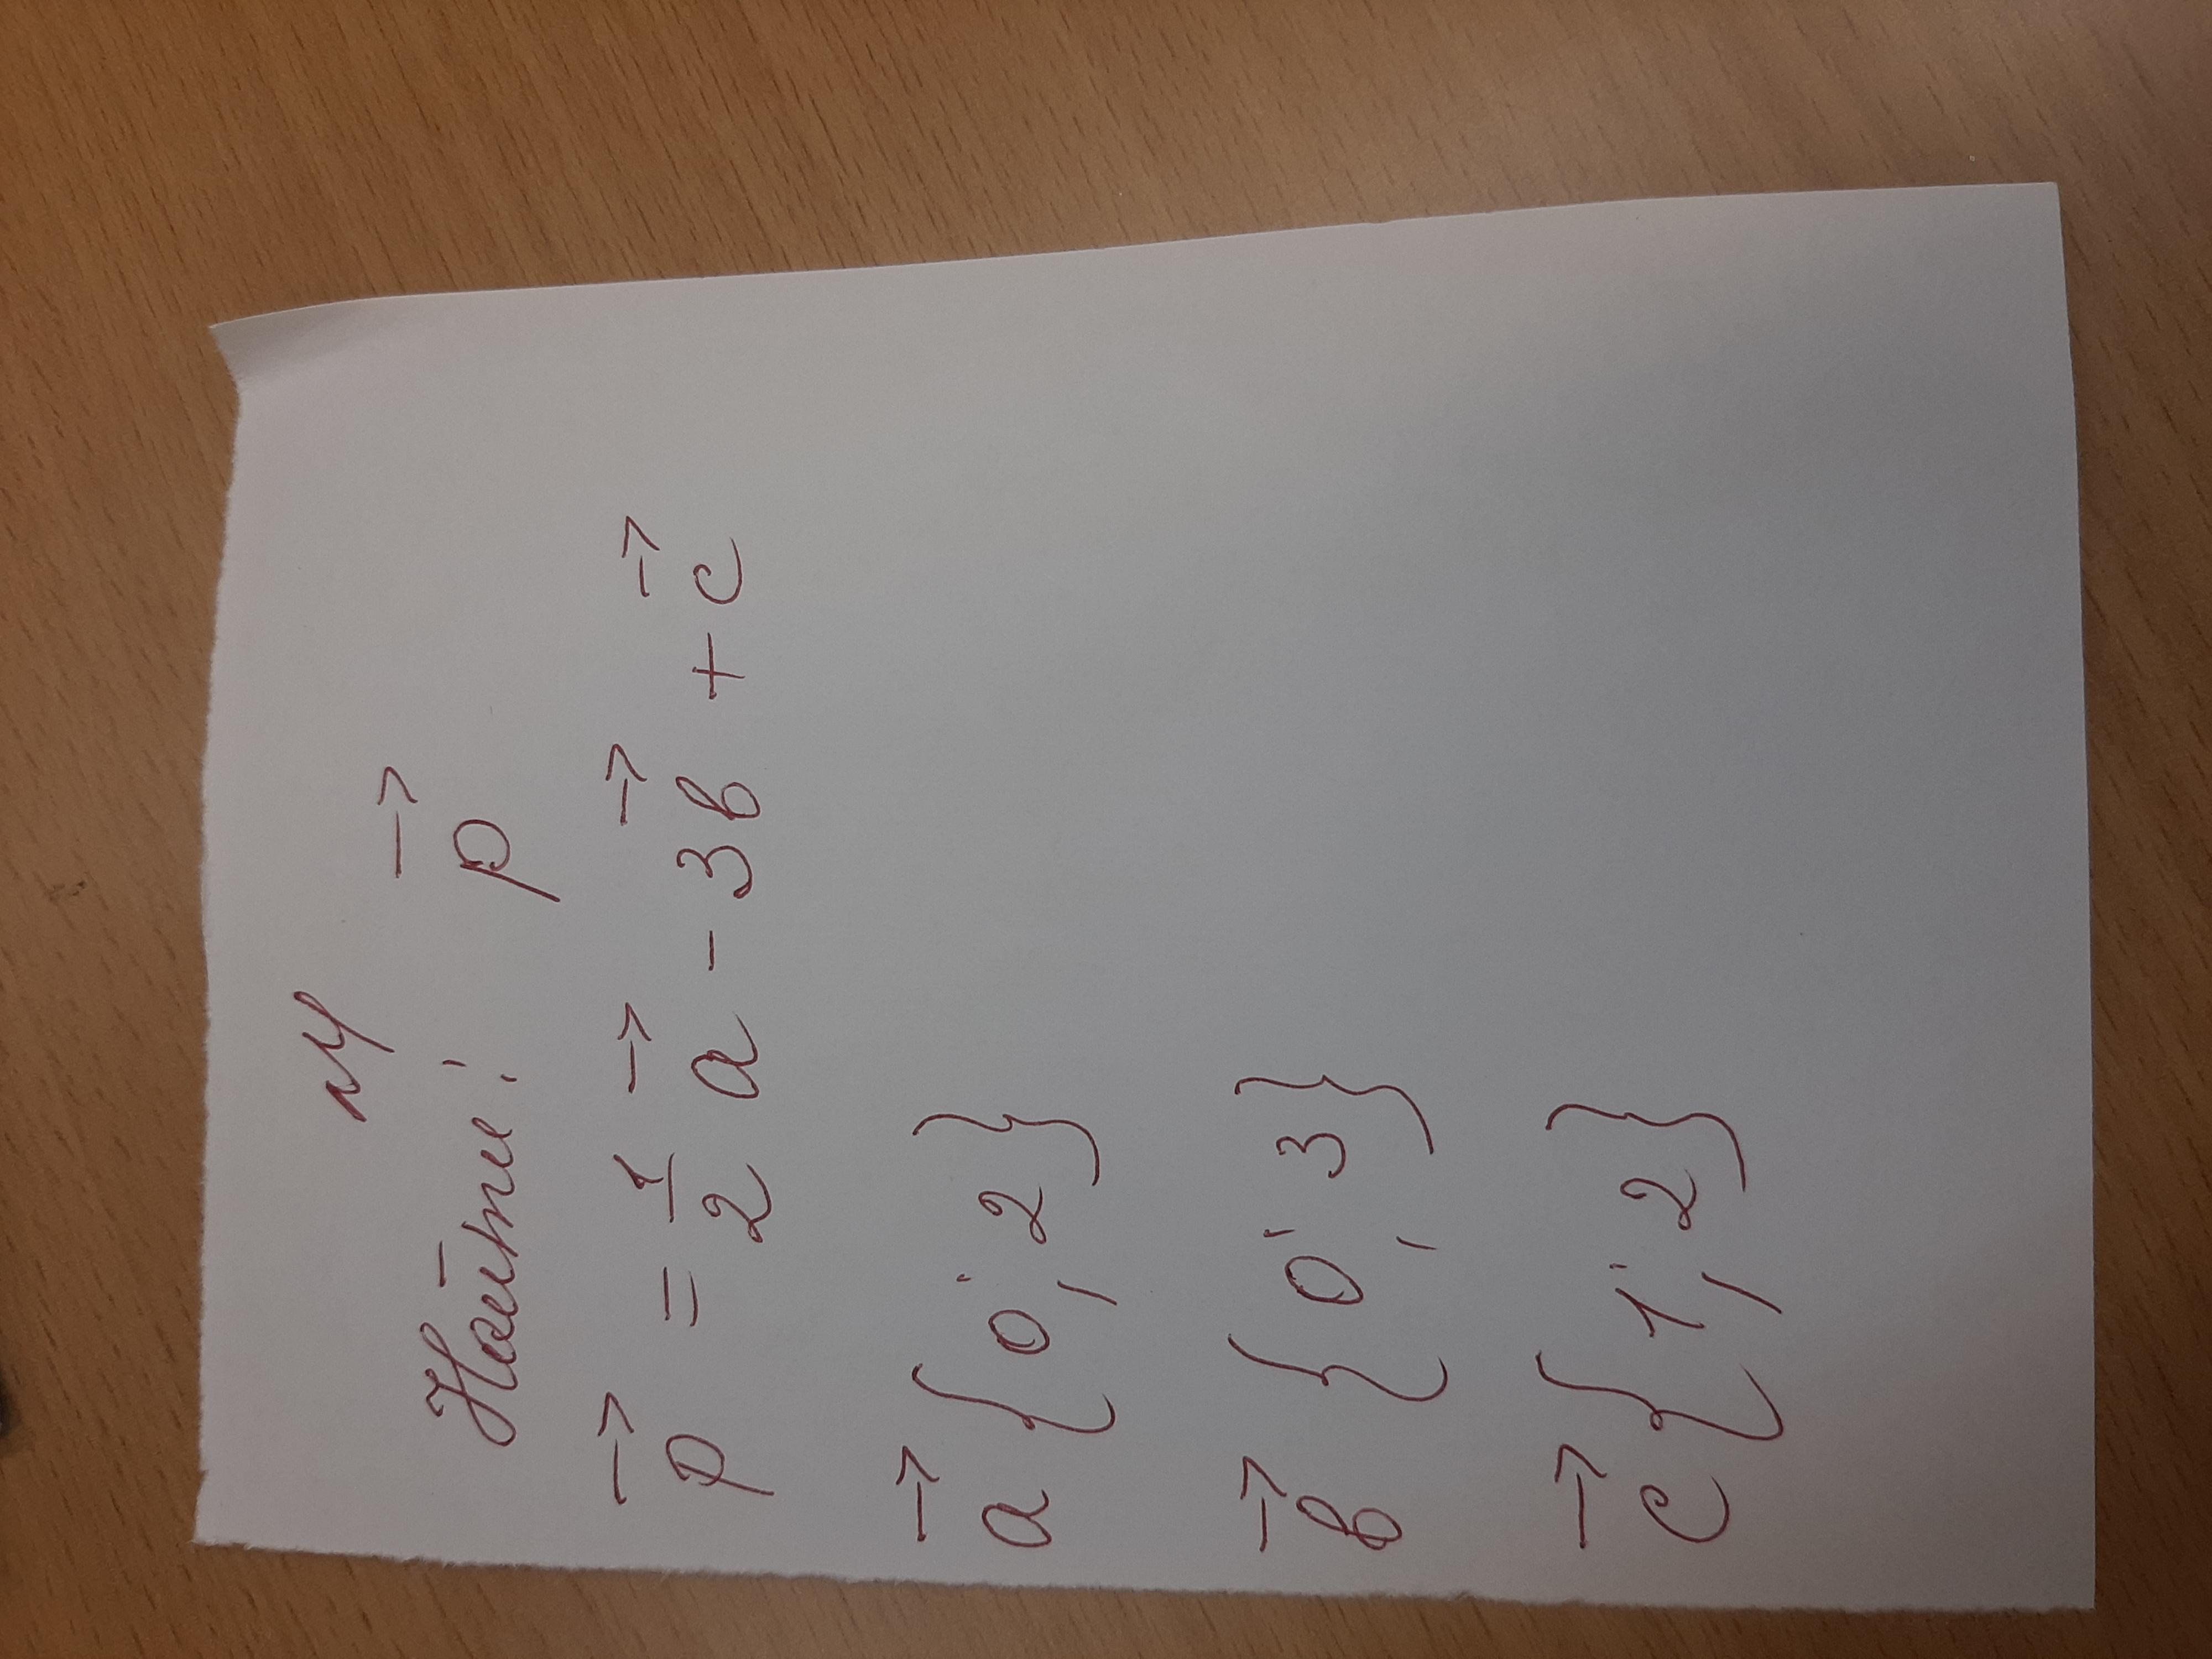 №4
Найти: p→
p→ = 1/2 a→ - 3b→ + c→
a→ {0; 2}
b→ {0; 3}
c→ {1; 2}